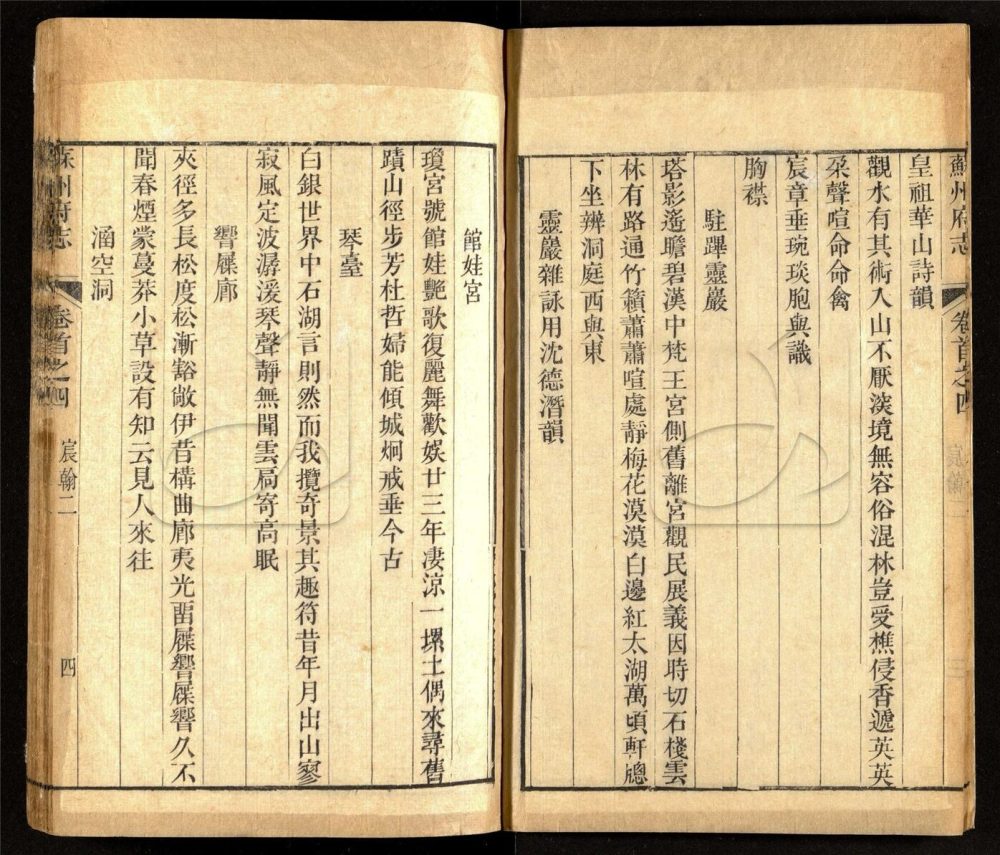 蘇州府志 卷首之四
皇祖華山詩韻
觀水有其術入山不厭淡境無容俗混林豈受樵侵香遞英英
罙聲喧命命禽
宸章垂琬琰胞與識
胸襟
駐蹕靈巖
塔影遙瞻碧漢中梵王宮側舊離宮觀民展義因時切石棧雲
林有路通竹籟蕭蕭喧處靜梅花漠漠白邊紅太湖萬頃軒牕
下坐辨洞庭西與東
靈巖雜詠用沈德潛韻
館娃宮
瓊宮號館娃艷歌復麗舞歡娛廿三年凄涼一堁土偶來尋舊
蹟山徑步芳杜哲婦能傾城炯戒垂今古
琴臺
白銀世界中石湖言則然而我攬奇景其趣符昔年月出山寥
寂風定波潺湲琴聲靜無聞雲扃寄高眠
響屧廊
夾徑多長松度松漸豁敞伊昔構曲廊夷光畱屧響屧響久不
聞春煙蒙蔓莽小草設有知云見人來往
涵空洞
蘇州府志 卷首之四 宸翰二 四